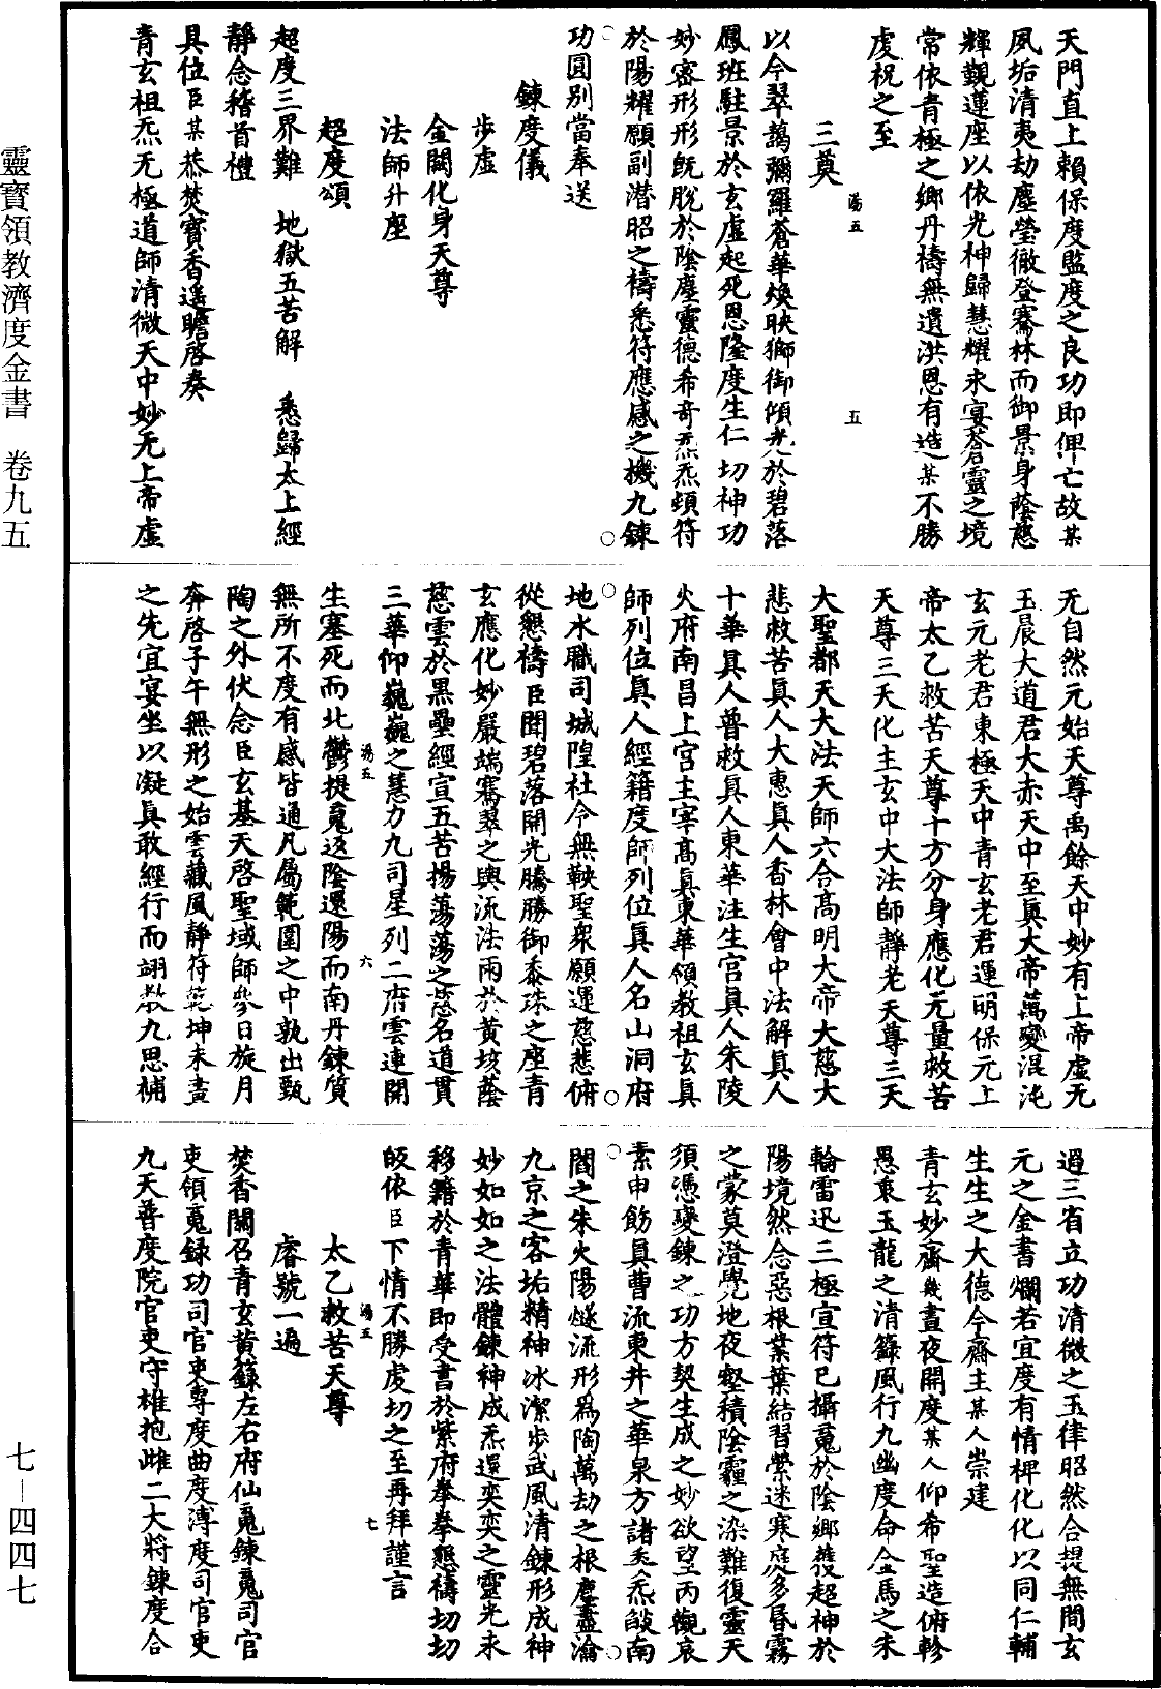 天門直上賴保度監度之良功即俾亡故某
夙垢清夷劫塵瑩徹登騫林而御景身蔭慈
輝覲蓮座以依光神歸慧耀永宴蒼靈之境
常依青極之鄉丹禱無遺洪恩有造某不勝
虔祝之至
三奠
以今翠藹彌羅蒼華煥映獅御傾光於碧落
鳳班駐景於玄虛起死恩隆度生仁切神功
妙密形形旣脫於陰塵靈德希奇炁炁頓符
於陽耀願副潛昭之禱悉符應感之機九鍊
功圓別當奉送
鍊度儀
步虛
金闕化身天尊
法師升座
超度頌
超度三界難 地獄五苦解 悉歸太上經
靜念稽首禮
具位臣某恭焚寶香遥瞻啓奏
青玄祖炁无極道師清微天中妙无上帝虛
无自然元始天尊禹餘天中妙有上帝虛无
玉晨大道君大赤天中至眞大帝萬變混沌
玄元老君東極天中青玄老君運明保元上
帝太乙救苦天尊十方分身應化无量救苦
天尊三天化主玄中大法師靜老天尊三天
大聖都天大法天師六合高明大帝大慈大
悲救苦眞人大惠眞人香林會中法解眞人
十華眞人普救眞人東華注生宫眞人朱陵
火府南昌上宫主宰高眞東華領教祖玄眞
師列位眞人經籍度師列位眞人名山洞府
地水職司城隍社令無鞅聖衆願運慈悲俯
從懇禱臣聞碧落開光騰勝御黍珠之座青
玄應化妙嚴端騫翠之輿流法雨於黄垓蔭
慈雲於黑壘經宣五苦揚蕩蕩之慈名道貫
三華仰巍巍之慧力九司星列二府雲連開
生塞死而北鬱提魂返陰還陽而南丹鍊質
無所不度有感皆通凡屬範圍之中孰出甄
陶之外伏念臣玄基天啓聖域師參日旋月
奔啓子午無形之始雲藏風靜符乾坤未畫
之先宜宴坐以凝眞敢經行而翊教九思補
過三省立功清微之玉律昭然合提無間玄
元之金書爛若宜度有情裨化化以同仁輔
生生之大德今齋主某人崇建
青玄妙齋幾晝夜開度某人仰希聖造俯軫
愚衷玉龍之清籙風行九幽度命金馬之朱
輪雷迅三極宣符已攝魂於陰鄉獲超神於
陽境然念惡根業葉結習縈迷寒庭多昏霧
之蒙莫澄覺地夜壑積陰霾之染難復靈天
須憑變鍊之功方契生成之妙欲望丙觀哀
素申飭眞曹流東井之華泉方諸炁炁啟南
閶之朱火陽燧流形爲陶萬劫之根塵盡瀹
九京之客垢精神冰潔步武風清鍊形成神
妙如如之法體鍊神成炁還奕奕之靈光永
移籍於青華即受書於紫府拳拳懇禱切切
皈依臣下情不勝虔切之至再拜謹言
太乙救苦天尊
睿號一遍
焚香關召青玄黄籙左右府仙魂鍊魂司官
吏領魂録功司官吏專度曲度溥度司官吏
九天普度院官吏守雄抱雌二大將鍊度合
湯五
五
湯五
六
湯五
七
靈寶領教濟度金書 卷九五
七—四四七